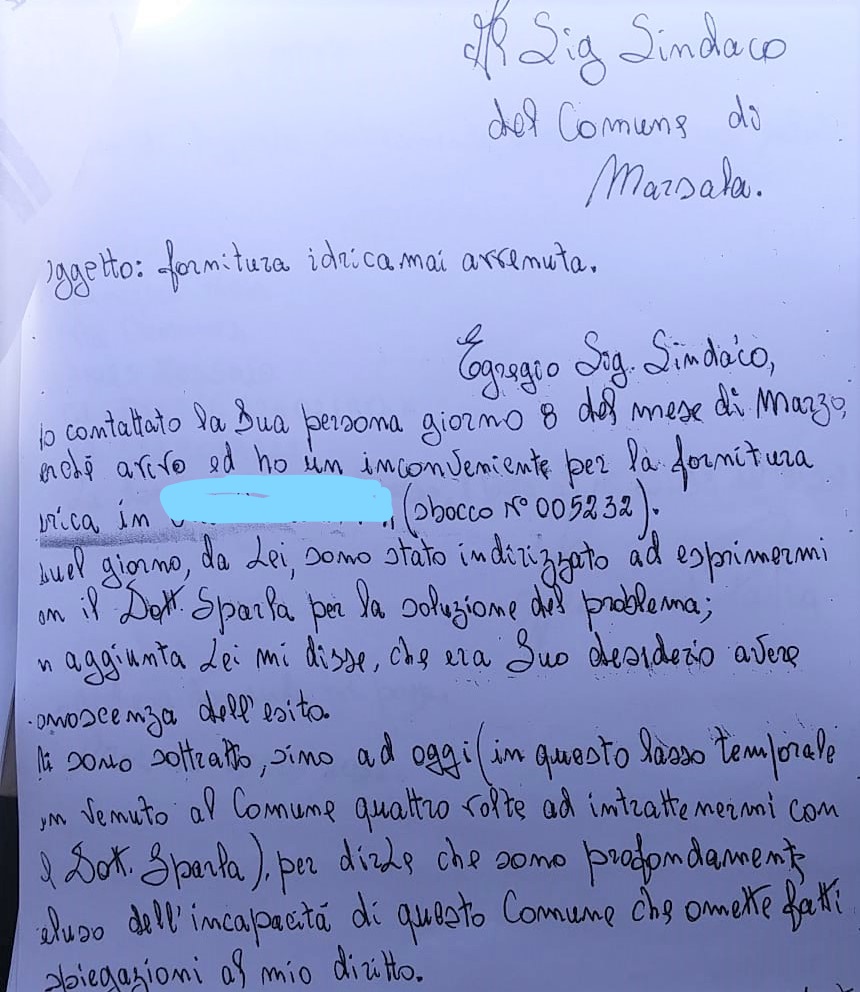 Al Sig Sindaco
del Comune di
Marsala.
oggetto: fornitura idrica mai avvenuta.
Egregio Sig. Sindaco,
io contattato la Sua persona giorno 8 del mese di Marzo,
erché avevo ed ho un inconveniente per la fornitura
drica in (sbocco N° 005232).
quel giorno, da Lei, sono stato indirizzato ad esprimermi
on il Dott. Sparla per la soluzione del problema;
n aggiunta Lei mi disse, che era Suo desiderio avere
onoscenza dell'esito.
Mi sono sottratto, sino ad oggi (in questo lasso temporale
on venuto al Comune quattro volte ad intrattenermi con
l Dott. Sparla), per dirle che sono profondamente
eluso dell'incapacità di questo Comune che omette fatti
spiegazioni al mio diritto.